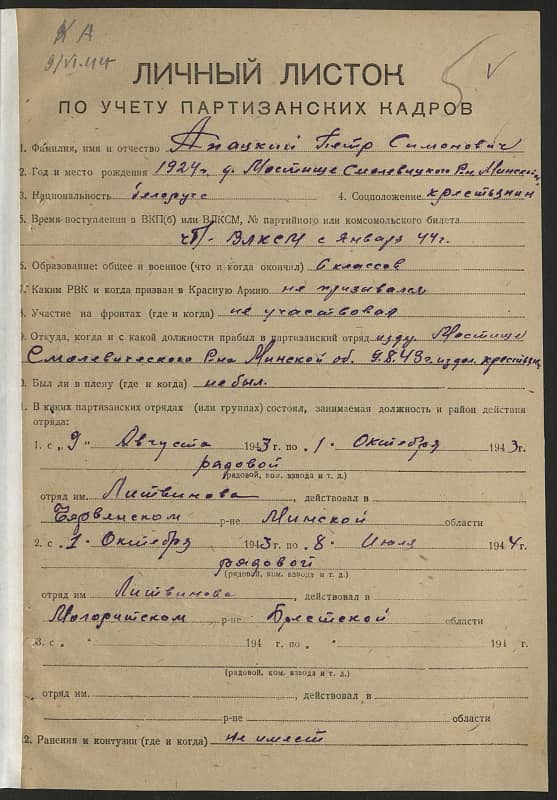 КА
ЛИЧНЫЙ ЛИСТОК
ПО УЧЕТУ ПАРТИЗАНСКИХ КАДРОВ
1. Фамилия, имя и отчество Апацкий Петр Симонович
2. Год и место рождения 1924 г. д. Мостище Смолевицкого Рна Минской
3. Национальность белорусс 4. Соцположение крестьянин
5. Время поступления в ВКП(б) или ВЛКСМ, № партийного или комсомольского билета
чл. ВЛКСМ с Января 44 г.
6. Образование: общее и военное (что и когда окончил) 6 классов
7. Каким РВК и когда призван в Красную Армию не призывался
8. Участие на фронтах (где и когда) не участвовал
9. Откуда, когда и с какой должности прибыл в партизанский отряд из д. Мостище
Смолевического Рна Минской об. 9.8.43 г. из дом. крестьян.
10. Был ли в плену (где и когда) не был.
1. В каких партизанских отрядах (или группах) состоял, занимаемая должность и район действия
отряда:
1. с „9" Августа 1943 г. по „1" Октября 1943 г.
рядовой
(рядовой, ком. взвода и т. д.)
отряд им. Литвинова, действовал в
Червенском р-не Минской области
2. с „1" Октября 1943 г. по „8" Июля 1944 г.
рядовой
(рядовой, ком. взвода и т. д.)
отряд им. Литвинова, действовал в
Малоритском р-не Брестской области
3. с „ " 194 г. по „ " 194 г.
(рядовой, ком. взвода и т. д.)
отряд им. , действовал в
р-не области
2. Ранения и контузии (где и когда) не имеет